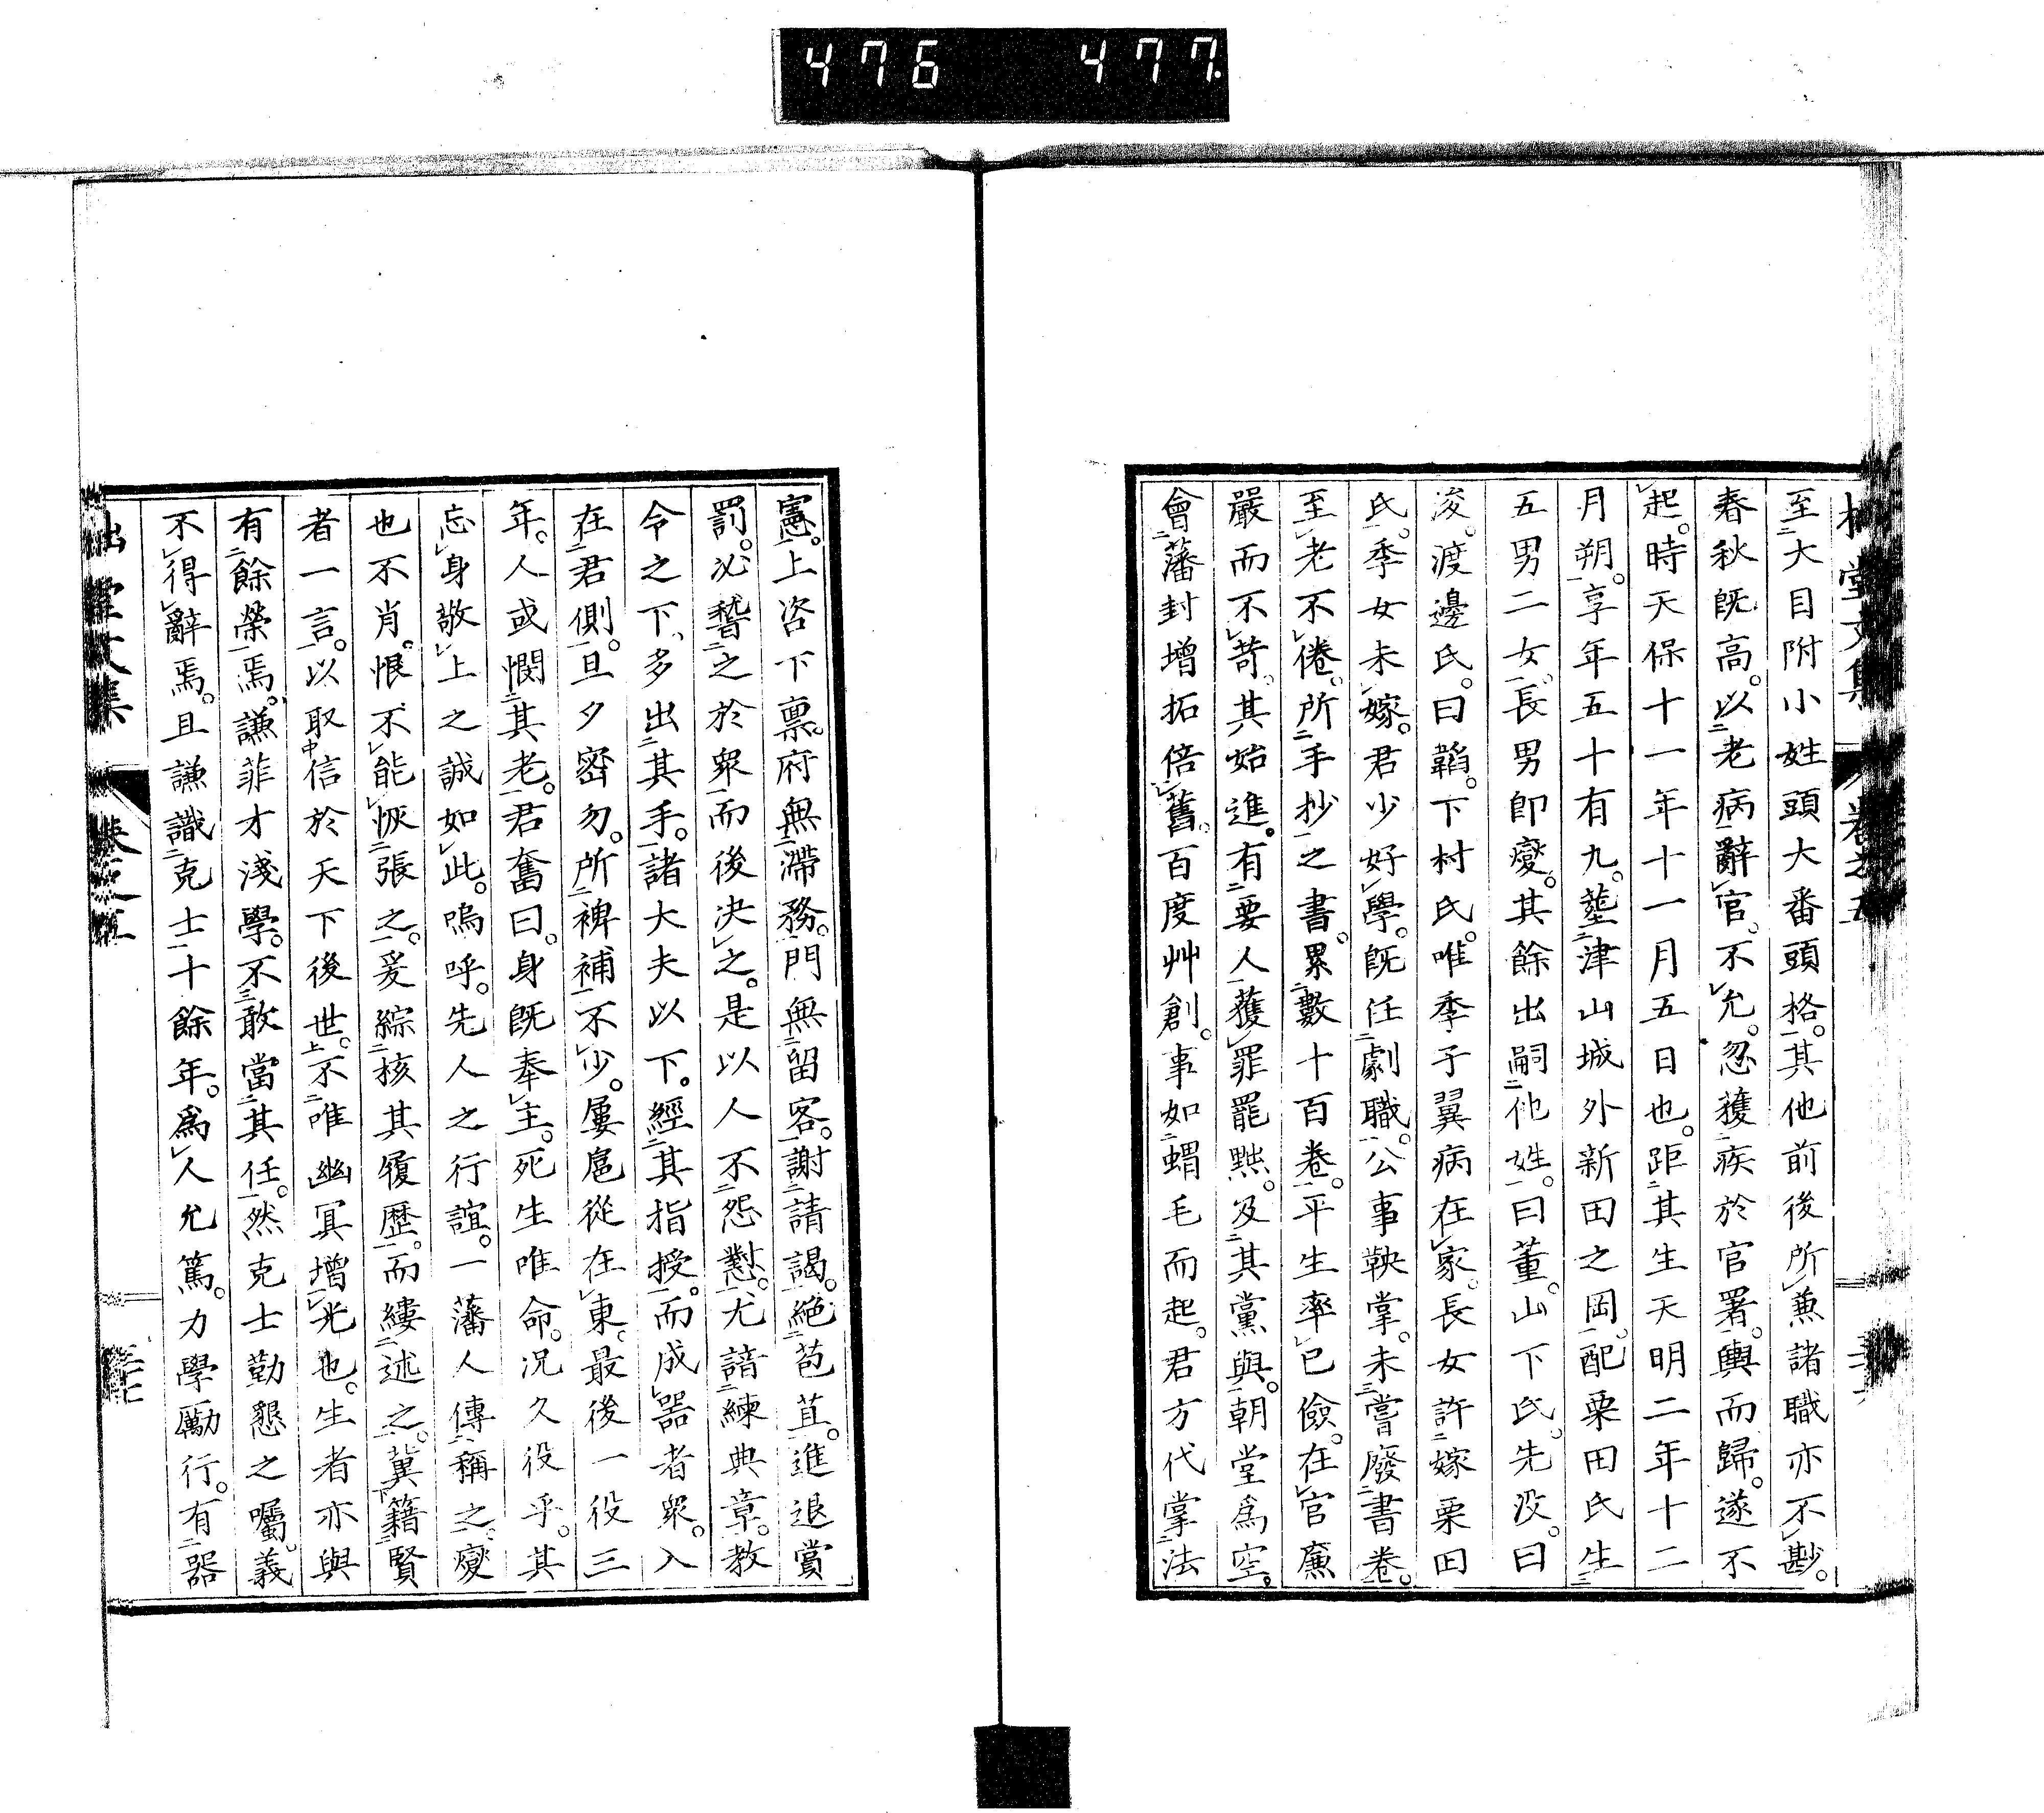 476 477
至大目附小姓頭大番頭格。其他前後所兼諸職亦不尠。
春秋既高。以老病辭官。不允。忽獲疾於官署。輿而歸。遂不
起。時天保十一年十一月五日也。距其生天明二年十二
月朔。享年五十有九。塟津山城外新田之岡。配栗田氏生
五男二女。長男卽燮。其餘出嗣他姓。曰董。山下氏。先沒。曰
浚。渡邊氏。曰韜。下村氏。唯季子翼病在家。長女許嫁栗田
氏。季女未嫁。君少好學。既任劇職。公事鞅掌。未嘗廢書卷。
至老不倦。所手抄之書。累數十百卷。平生率已儉。在官廉
嚴而不苛。其始進。有要人獲罪罷黜。及其黨與。朝堂爲空。
會藩封增拓倍舊。百度艸創。事如蝟毛而起。君方代掌法
憲。上咨下禀。府無滯務。門無留客。謝請謁。絕苞苴。進退賞
罰。必誓之於衆而後決之。是以人不怨懟。尤諳練典章。教
令之下、多出其手。諸大夫以下。經其指授。而成器者衆。入
在君側。旦夕密勿。所裨補不少。屢扈從在東。最後一役三
年。人或憫其老。君奮曰。身既奉主。死生唯命。况久役乎。其
忘身敬上之誠如此。嗚呼。先人之行誼。一藩人傳稱之。燮
也不肖。恨不能恢張之。爰綜核其履歷。而縷述之。冀籍賢
者一言。以取信於天下後世。不唯幽冥增光也。生者亦與
有餘榮焉。謙菲才淺學。不敢當其任。然克士勤懇之囑。義
不得辭焉。且謙識克士十餘年。爲人允篤。力學勵行。有器
拙堂文集 卷之五